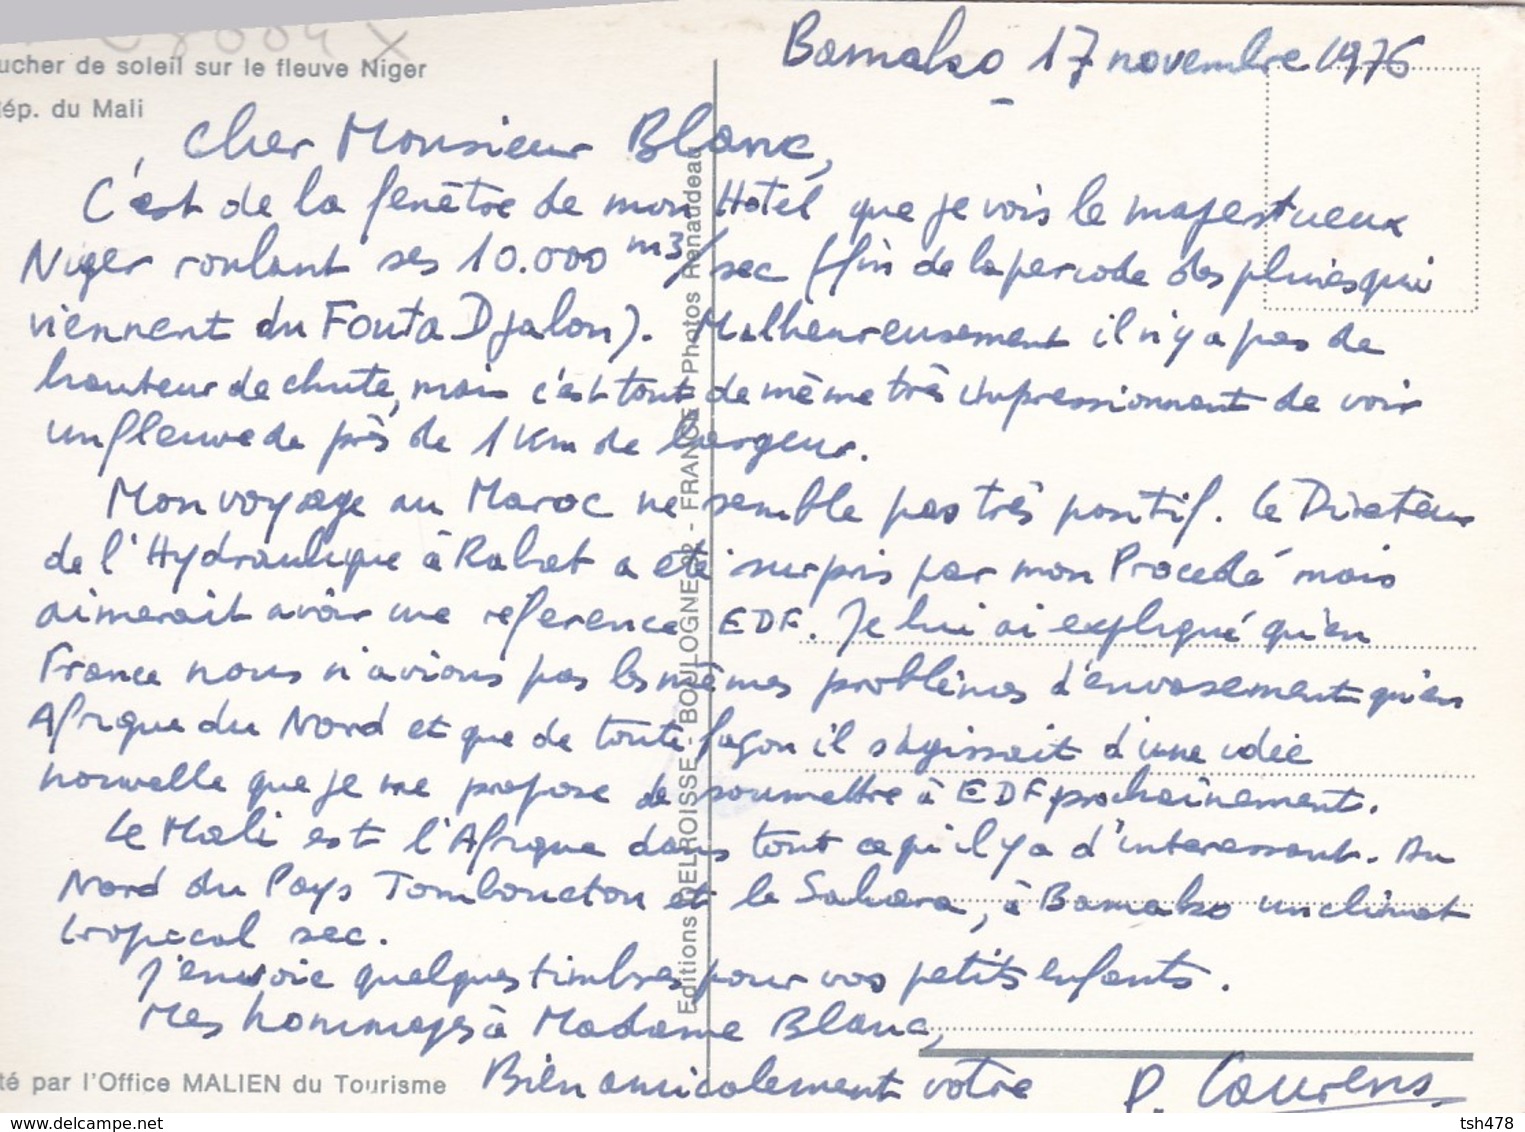 Bamako 17 novembre 1976
ucher de soleil sur le fleuve Niger
ép. du Mali
Cher Monsieur Blanc,
C'est de la fenêtre de mon Hotel que je vois le majestueux
Niger roulant ses 10.000 m3/sec (fin de la periode des pluies qui
viennent du Fouta Djalon). Malheureusement il n'y a pas de
hauteur de chute, mais c'est tout de même très impressionnant de voir
un fleuve de près de 1 Km de largeur.
Mon voyage au Maroc ne semble pas très positif. Le Directeur
de l'Hydraulique à Rabat a été surpris par mon Procédé mais
aimerait avoir une reference EDF. Je lui ai expliqué qu'en
France nous n'avions pas les mêmes problèmes d'envasement qu'en
Afrique du Nord et que de toute façon il s'agissait d'une idée
nouvelle que je me propose de soumettre à EDF prochainement.
Le Mali est l'Afrique dans tout ce qu'il y a d'interessant. Au
Nord du Pays Tombouctou et le Sahara, à Bamako un climat
tropical sec.
J'envoie quelques timbres pour vos petits enfants.
Mes hommages à Madame Blanc,
Bien amicalement votre P. Courens
té par l'Office MALIEN du Tourisme
Editions DELROISSE - BOULOGNE 92 - FRANCE Photos Renaudeau
www.delcampe.net
tsh478